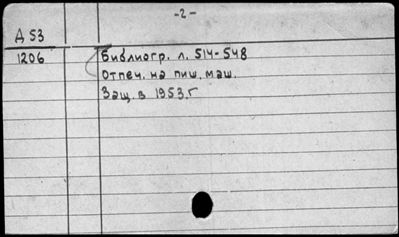 -2-
Д 53
1206
Библиогр. л. 514-548
Отпеч. на пиш. маш.
Защ. в 1953.г